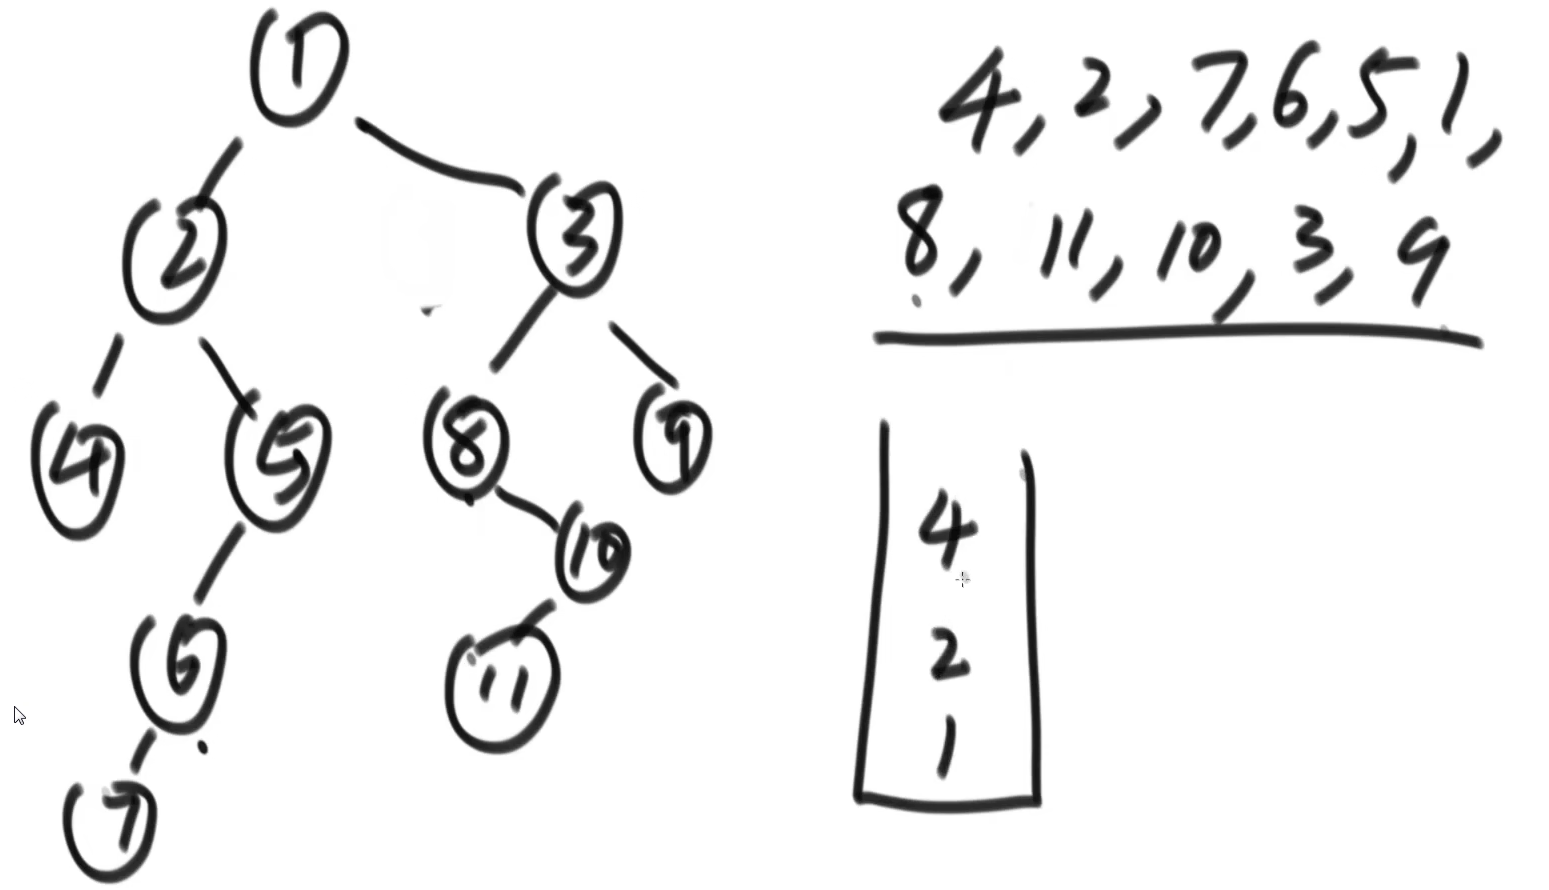 1
2
3
4
5
8
9
10
6
11
7
4, 2, 7, 6, 5, 1,
8, 11, 10, 3, 9
4
2
1